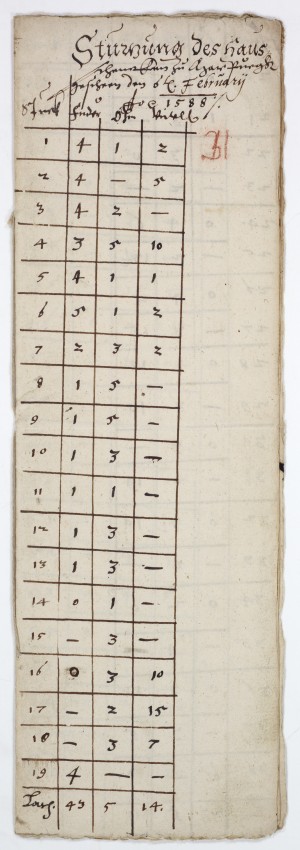 Sturzung des Haus
Kellers zu
geschehen den 6t. February
Ao 1588
Stuck Fuder Ohm Virtel
1 4 1 2
2 4 — 5
3 4 2 —
4 3 5 10
5 4 1 1
6 5 1 2
7 2 3 2
8 1 5 —
9 1 5 —
10 1 3 —
11 1 1 —
12 1 3 —
13 1 3 —
14 0 1 —
15 — 3 —
16 0 3 10
17 — 2 15
18 — 3 7
19 4 — —
43 5 14.